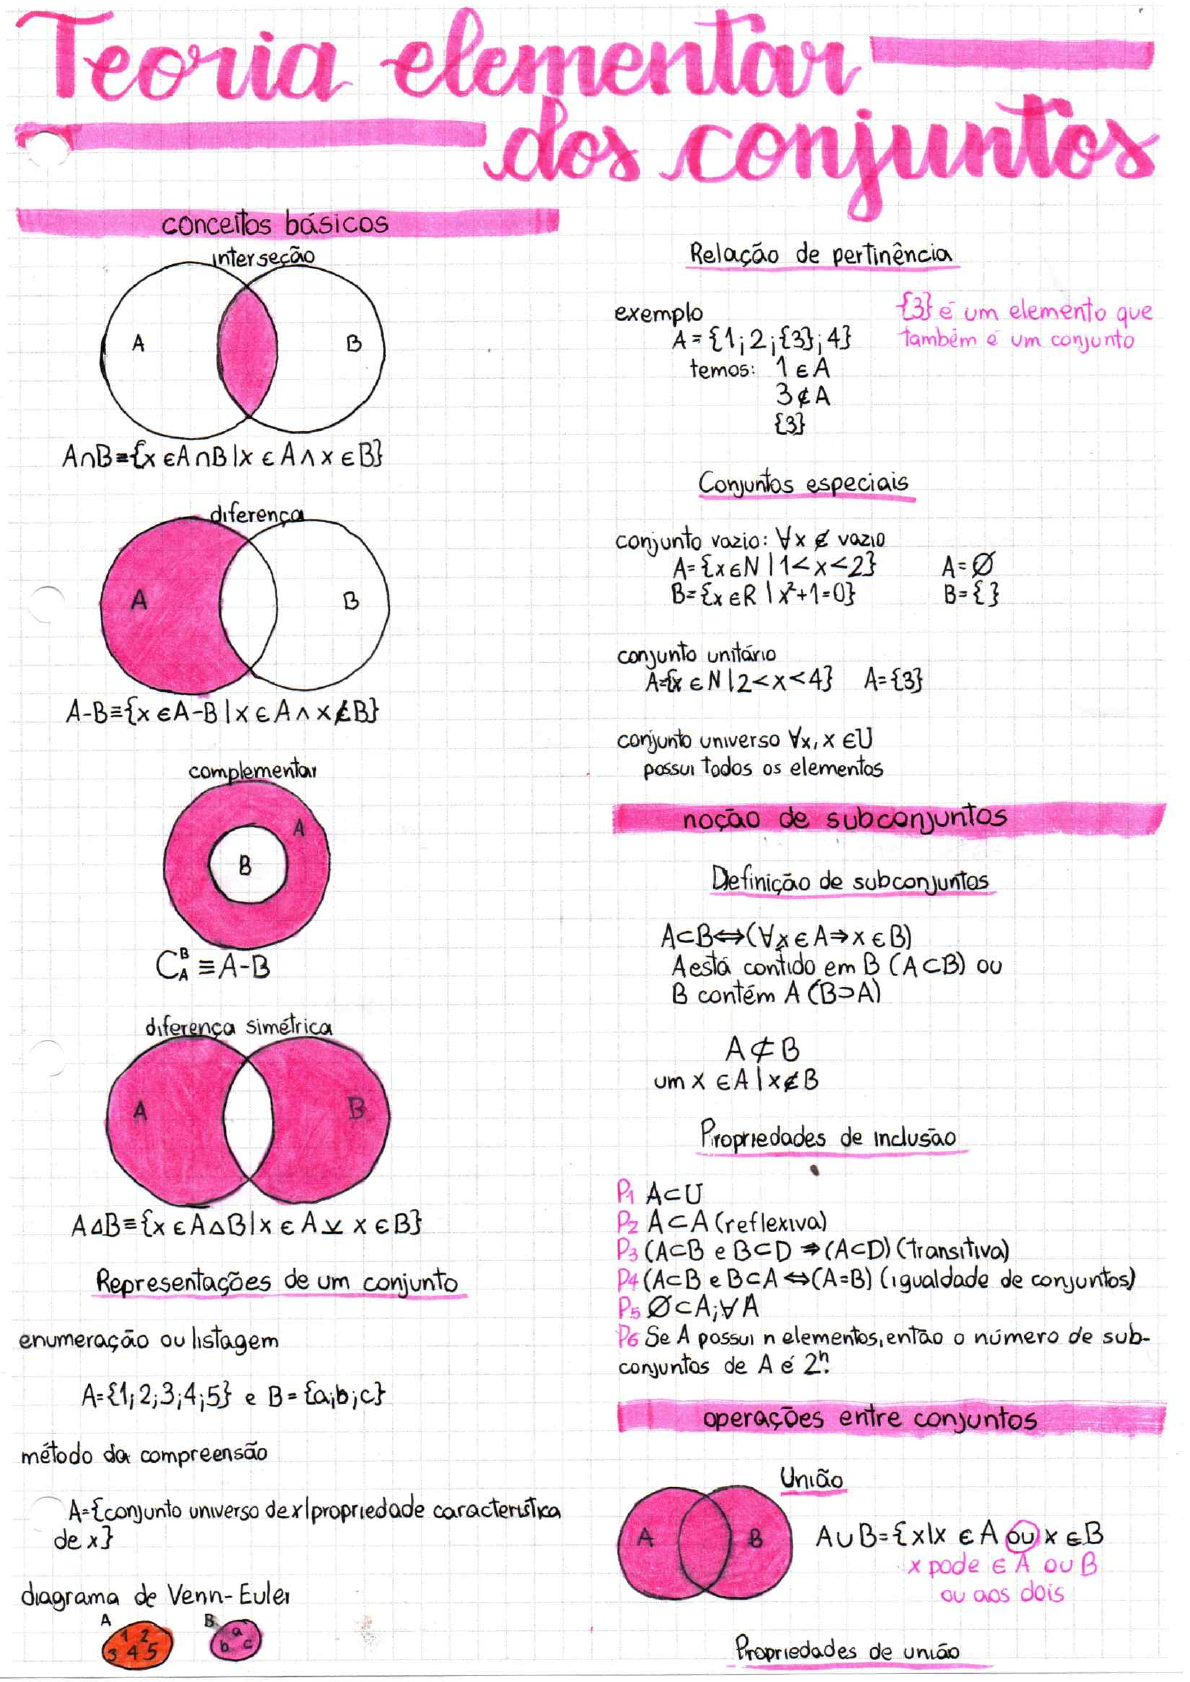 Teoria elementar
dos conjuntos
conceitos básicos
interseção
A B
A∩B≡{x ∈A∩B|x ∈ A ∧ x ∈ B}
diferença
A B
A-B≡{x ∈A-B|x ∈ A ∧ x ∉ B}
complementar
A
B
C_A^B ≡ A-B
diferença simétrica
A B
A△B≡{x ∈ A△B|x ∈ A ⊻ x ∈ B}
Representações de um conjunto
enumeração ou listagem
A={1;2;3;4;5} e B={a;b;c}
método da compreensão
A={conjunto universo de x|propriedade característica
de x}
diagrama de Venn-Euler
A B
1 2 a
3 4 5 b c
Relação de pertinência
exemplo
A={1;2;{3};4}
temos: 1 ∈ A
3 ∉ A
{3}
{3} é um elemento que
também é um conjunto
Conjuntos especiais
conjunto vazio: ∀x ∉ vazio
A={x∈N|1<x<2} A=∅
B={x∈R|x²+1=0} B={ }
conjunto unitário
A={x ∈ N|2<x<4} A={3}
conjunto universo ∀x, x ∈U
possui todos os elementos
noção de subconjuntos
Definição de subconjuntos
A⊂B⇔(∀x∈A⇒x∈B)
A está contido em B (A⊂B) ou
B contém A (B⊃A)
A⊄B
um x ∈A|x∉B
Propriedades de inclusão
P1 A⊂U
P2 A⊂A (reflexiva)
P3 (A⊂B e B⊂D ⇒(A⊂D) (transitiva)
P4 (A⊂B e B⊂A ⇔(A=B) (igualdade de conjuntos)
P5 ∅⊂A;∀A
P6 Se A possui n elementos, então o número de sub-
conjuntos de A é 2ⁿ.
operações entre conjuntos
União
A B
A∪B={x|x ∈ A ou x ∈ B
x pode ∈ A ou B
ou aos dois
Propriedades de união